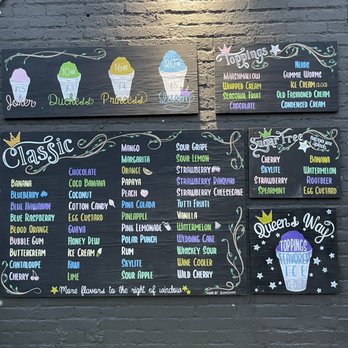 8oz
10oz
16oz
20oz
Joker
Duchess
Princess
Queen
Toppings
Marshmallow
Whipped Cream
Seasonal Fruit
Chocolate
Nerds
Gummie Worms
Ice Cream
Old Fashioned Cream
Condensed Cream
Classic
Banana
Blueberry
Blue Hawaiian
Blue Raspberry
Blood Orange
Bubble Gum
Buttercream
Cantaloupe
Cherry
Chocolate
Coco Banana
Coconut
Cotton Candy
Egg Custard
Guava
Honey Dew
Ice Cream
Kiwi
Lime
Mango
Margarita
Orange
Papaya
Peach
Pina Colada
Pineapple
Pink Lemonade
Polar Punch
Rum
Skylite
Sour Apple
Sour Grape
Sour Lemon
Strawberry
Strawberry Daiquiri
Strawberry Shortcake
Tutti Fruitti
Vanilla
Watermelon
Wedding Cake
Whiskey Sour
Wine Cooler
Wild Cherry
More flavors to the right of window
Sugar Free
Cherry
Skylite
Strawberry
Spearmint
Banana
Watermelon
Rootbeer
Egg Custard
Queen's Way
Toppings
Ice